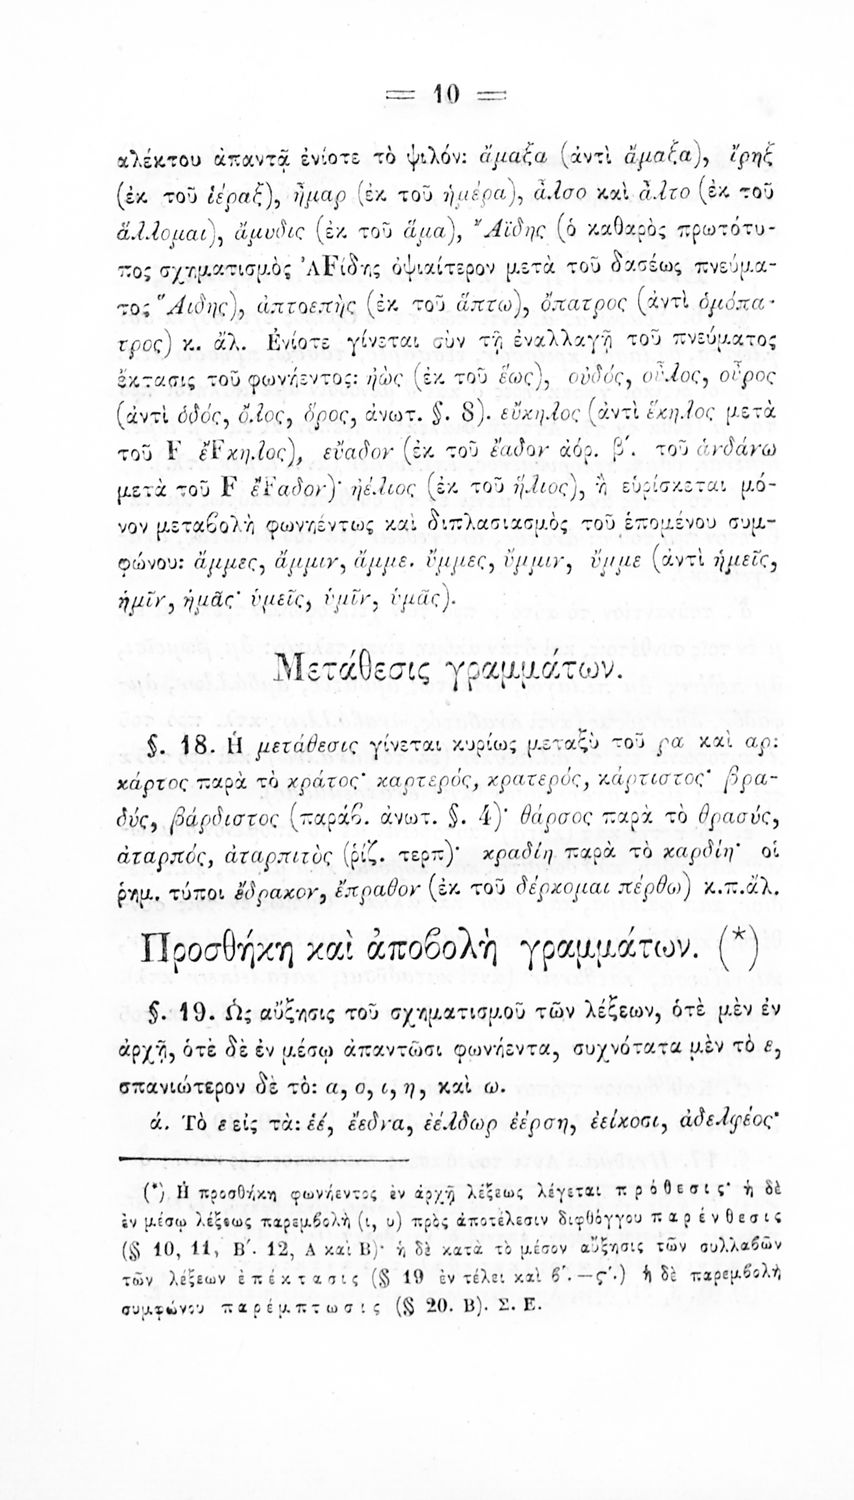 = 10 =
αλέκτου ἀπαντᾷ ἐνίοτε τὸ ψιλόν: ἄμαξα (ἀντὶ ἅμαξα), ἴρηξ
(ἐκ τοῦ ἱέραξ), ἦμαρ (ἐκ τοῦ ἡμέρα), ἆλσο καὶ ἆλτο (ἐκ τοῦ
ἅλλομαι), ἄμυδις (ἐκ τοῦ ἅμα), Ἄϊδης (ὁ καθαρὸς πρωτότυ-
πος σχηματισμὸς ἈFίδης ὀψιαίτερον μετὰ τοῦ δασέως πνεύμα-
τος Ἅιδης), ἀπτοεπὴς (ἐκ τοῦ ἅπτω), ὄπατρος (ἀντὶ ὁμόπα-
τρος) κ. ἄλ. Ἐνίοτε γίνεται σὺν τῇ ἐναλλαγῇ τοῦ πνεύματος
ἔκτασις τοῦ φωνήεντος: ἠὼς (ἐκ τοῦ ἕως), οὐδός, οὖλος, οὖρος
(ἀντὶ ὁδός, ὅλος, ὅρος, ἀνωτ. §. 8). εὔκηλος (ἀντὶ ἕκηλος μετὰ
τοῦ F ἔFκηλος), εὔαδον (ἐκ τοῦ ἕαδον ἀόρ. β΄. τοῦ ἁνδάνω
μετὰ τοῦ F ἔFαδον)· ἠέλιος (ἐκ τοῦ ἥλιος), ἢ εὑρίσκεται μό-
νον μεταβολὴ φωνήεντως καὶ διπλασιασμὸς τοῦ ἑπομένου συμ-
φώνου: ἄμμες, ἄμμιν, ἄμμε. ὔμμες, ὔμμιν, ὔμμε (ἀντὶ ἡμεῖς,
ἡμῖν, ἡμᾶς· ὑμεῖς, ὑμῖν, ὑμᾶς).
Μετάθεσις γραμμάτων.
§. 18. Ἡ μετάθεσις γίνεται κυρίως μεταξὺ τοῦ ρα καὶ αρ:
κάρτος παρὰ τὸ κράτος· καρτερός, κρατερός, κάρτιστος· βρα-
δύς, βάρδιστος (παράβ. ἀνωτ. §. 4)· θάρσος παρὰ τὸ θρασύς,
ἀταρπός, ἀταρπιτὸς (ῥίζ. τερπ)· κραδίη παρὰ τὸ καρδίη· οἱ
ῥημ. τύποι ἔδρακον, ἔπραθον (ἐκ τοῦ δέρκομαι πέρθω) κ.π.ἄλ.
Προσθήκη καὶ ἀποβολὴ γραμμάτων. (*)
§. 19. Ὡς αὔξησις τοῦ σχηματισμοῦ τῶν λέξεων, ὁτὲ μὲν ἐν
ἀρχῇ, ὁτὲ δὲ ἐν μέσῳ ἀπαντῶσι φωνήεντα, συχνότατα μὲν τὸ ε,
σπανιώτερον δὲ τὸ: α, ο, ι, η, καὶ ω.
ά. Τὸ ε εἰς τὰ: ἑέ, ἔεδνα, ἐέλδωρ ἐέρση, ἐείκοσι, ἀδελφέος·
(*) Ἡ προσθήκη φωνήεντος ἐν ἀρχῇ λέξεως λέγεται πρόθεσις· ἡ δὲ
ἐν μέσῳ λέξεως παρεμβολὴ (ι, υ) πρὸς ἀποτέλεσιν διφθόγγου παρένθεσις
(§ 10, 11, Β΄. 12, Α καὶ Β)· ἡ δὲ κατὰ τὸ μέσον αὔξησις τῶν συλλαβῶν
τῶν λέξεων ἐπέκτασις (§ 19 ἐν τέλει καὶ β΄.—ς΄.) ἡ δὲ παρεμβολὴ
συμφώνου παρέμπτωσις (§ 20. Β). Σ. Ε.